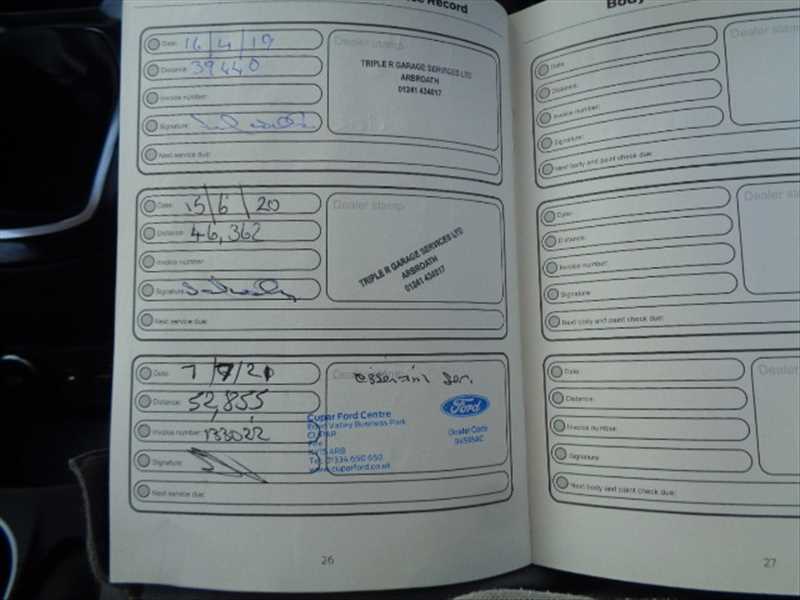 Record
Date: 16/4/19
Dealer stamp
Distance: 39440
TRIPLE R GARAGE SERVICES LTD
ARBROATH
01241 434017
Invoice number:
Signature:
Next service due:
Date: 15/6/20
Dealer stamp
Distance: 46,362
TRIPLE R GARAGE SERVICES LTD
ARBROATH
01241 434017
Invoice number:
Signature:
Next service due:
Date:
Distance: 52,855
Invoice number: 133022
Signature:
Next service due:
Cupar Ford Centre
Eden Valley Business Park
CUPAR
Fife
KY15 4RB
Tel: 01334 650 650
www.cuparford.co.uk
Ford
Dealer Code
26
Body
Date:
Dealer stamp
Distance:
Invoice number:
Signature:
Next body and paint check due:
Date:
Dealer stamp
Distance:
Invoice number:
Signature:
Next body and paint check due:
Date:
Dealer
Distance:
Invoice number:
Signature:
Next body and paint check due:
27